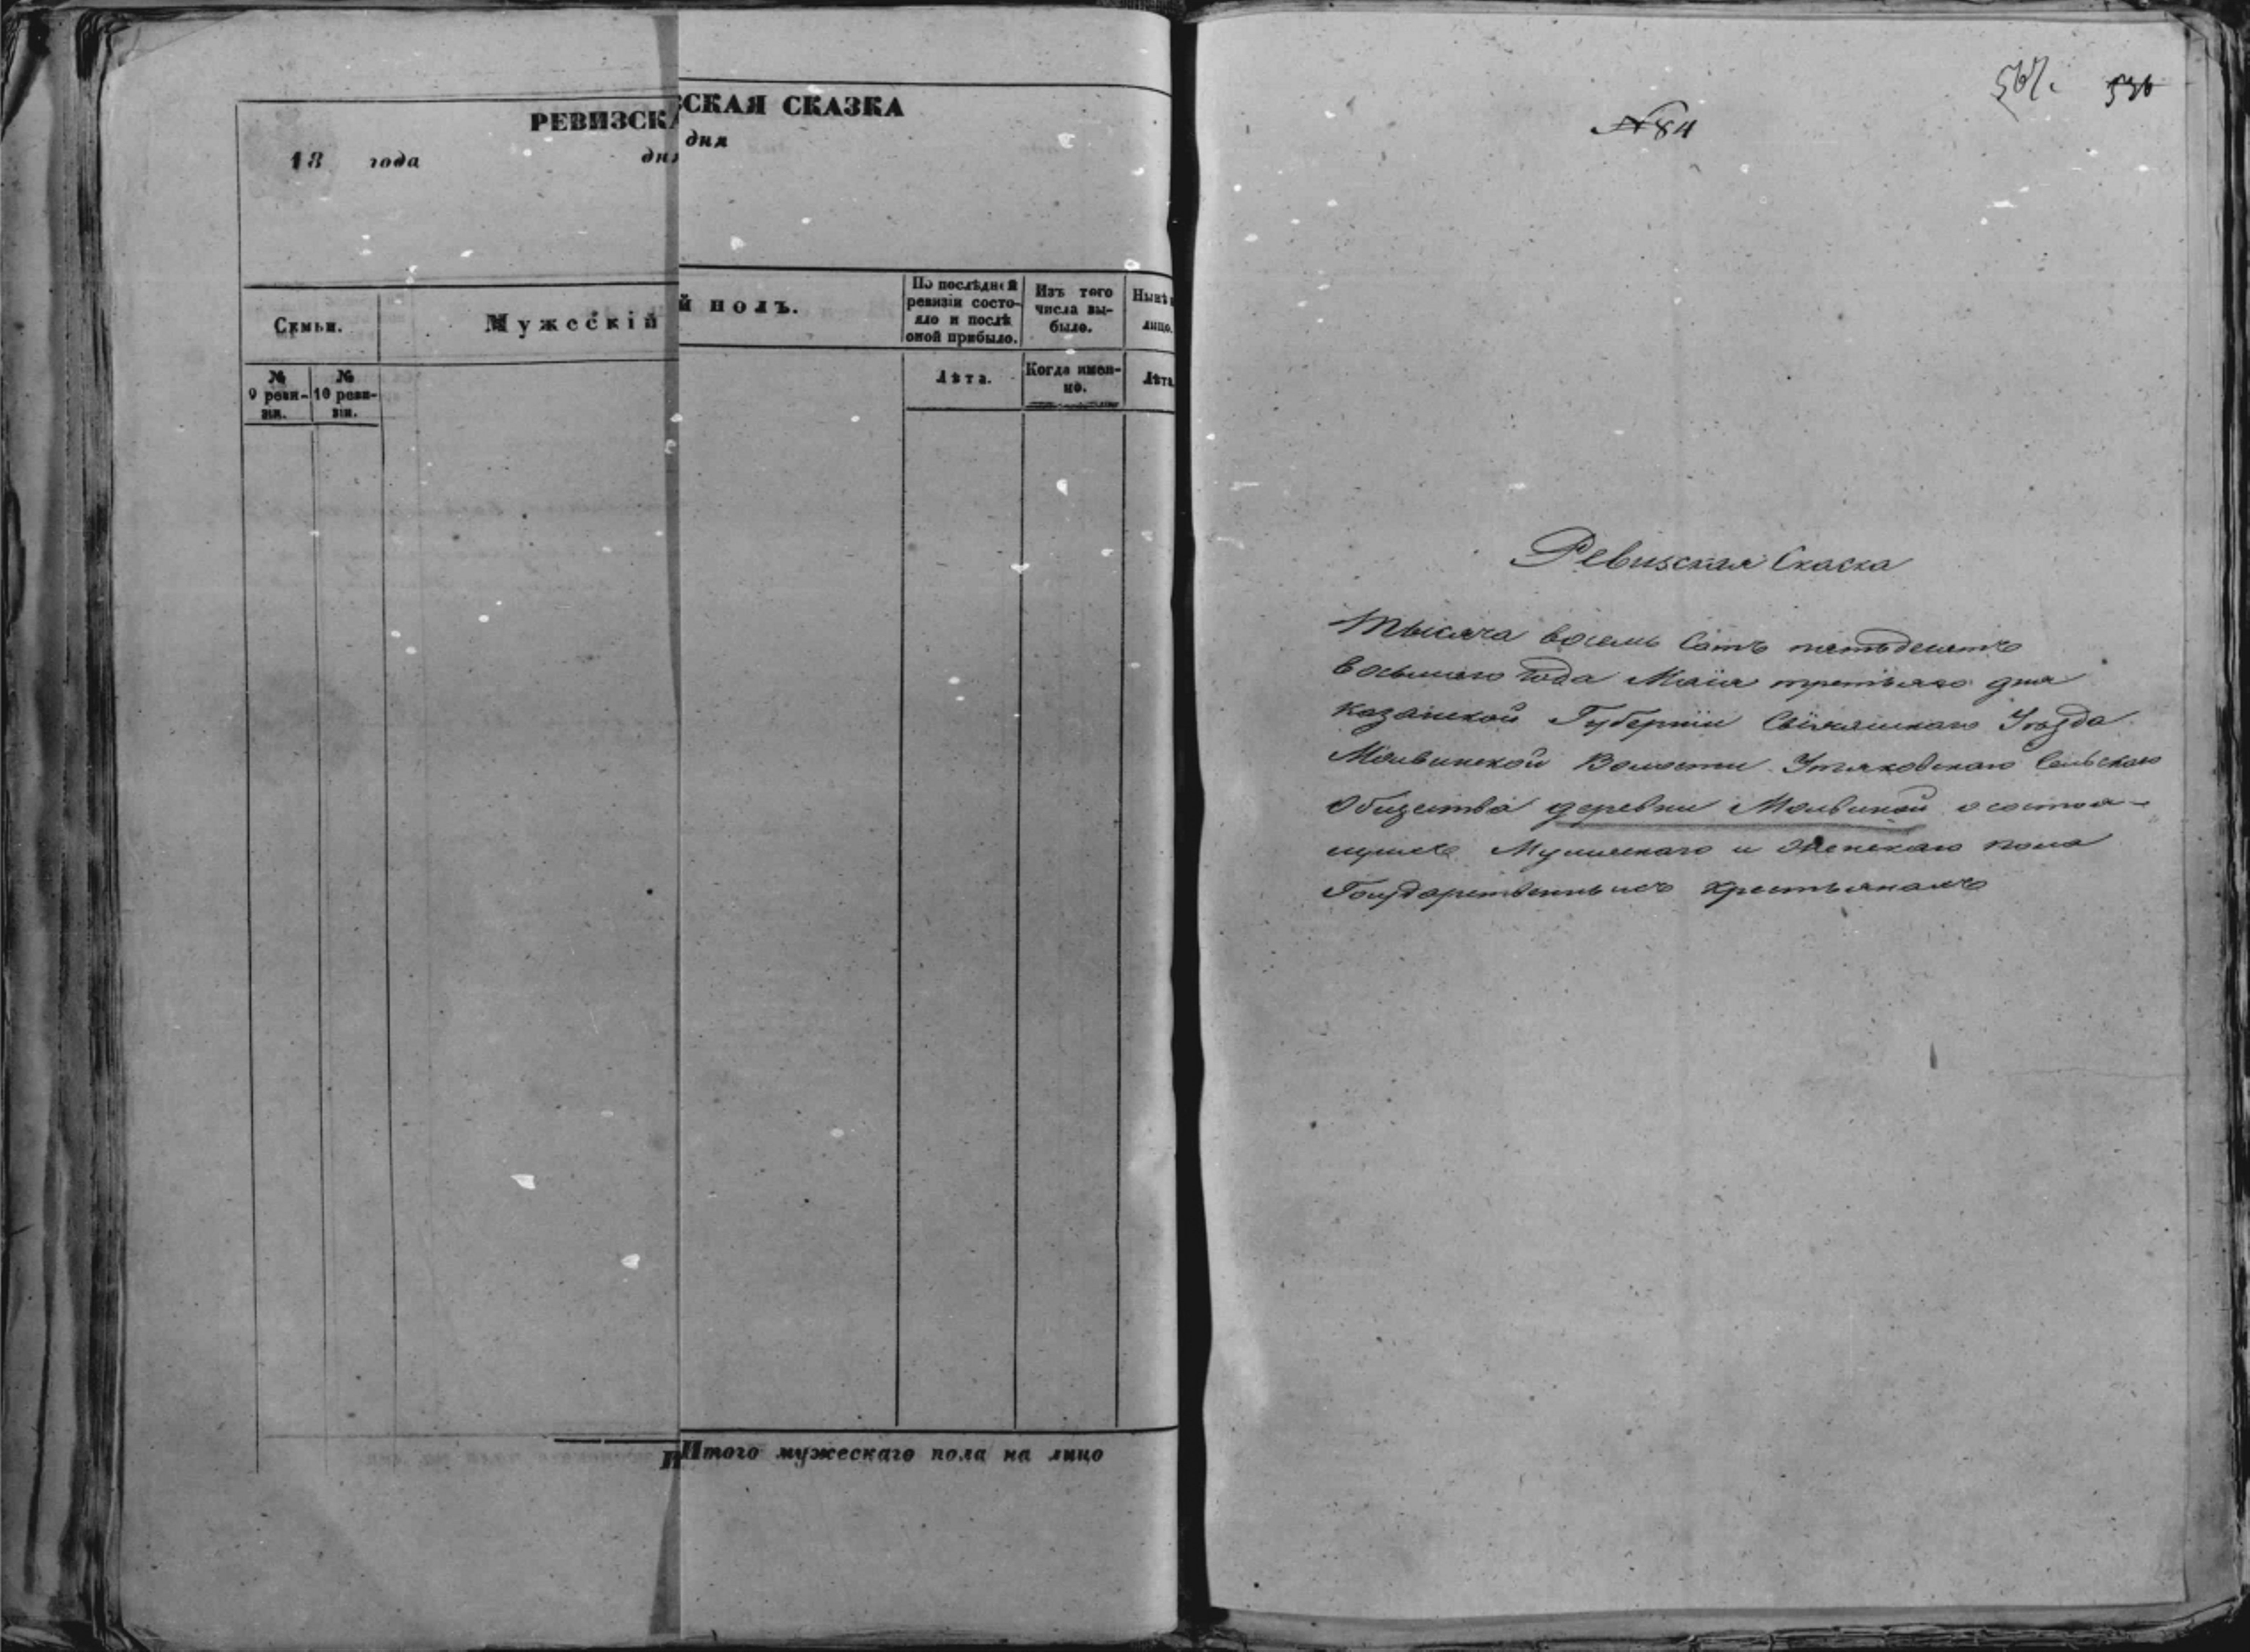 РЕВИЗСКАЯ СКАЗКА
18 года дня
Семьи.
Мужескій полъ.
По послѣдней
ревизіи состо-
яло и послѣ
оной прибыло.
Изъ того
числа вы-
было.
Нынѣ
лицо.
№
9 реви-
зіи.
№
10 реви-
зіи.
Лѣта.
Когда имен-
но.
Лѣта.
Итого мужескаго пола на лицо
567. 536
№ 84
Ревизская Скаска
Тысяча восемь сотъ пятьдесятъ
восьмаго года Маія третьяго дня
Казанской Губерніи Свіяжскаго Уѣзда
Молвинской Волости Утяковскаго Сельскаго
Общества деревни Молвиной о состоя-
щихъ Мужескаго и Женскаго пола
Государственныхъ крестьянахъ